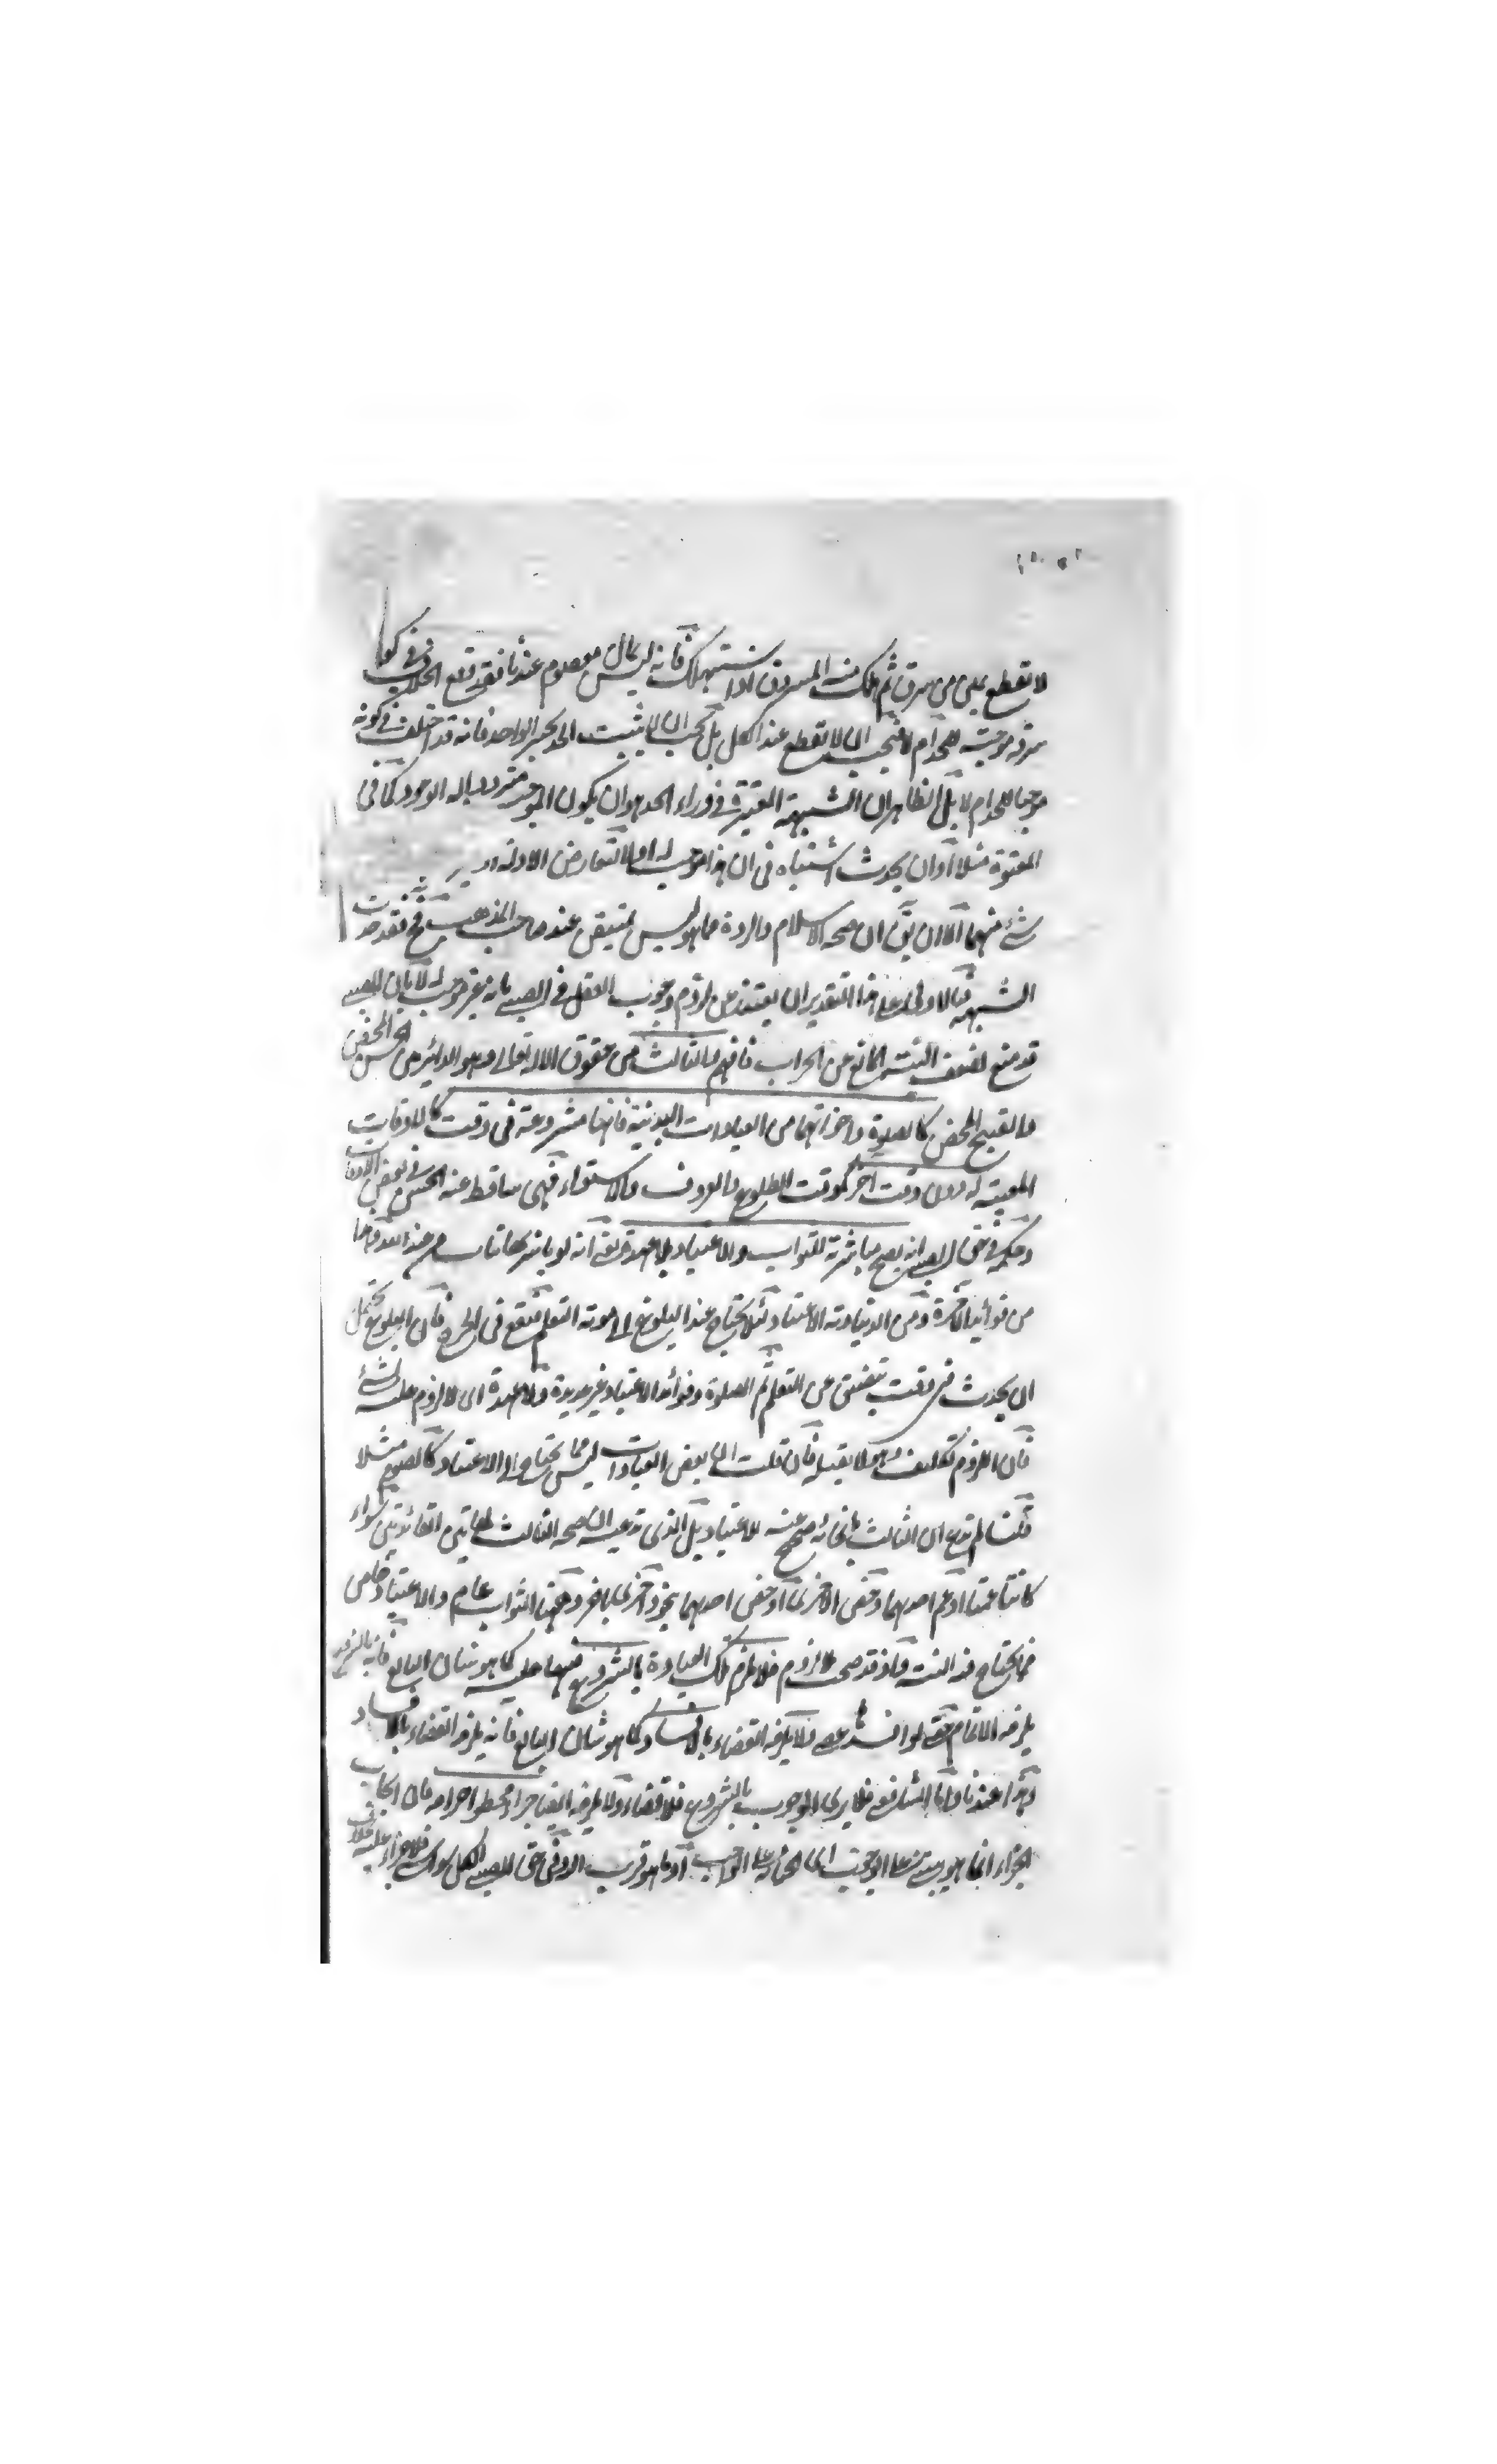 لا تقطع يمين من سرق ثم هلك منه المسروق او استهلك فانه ليس بمال معصوم عندنا فقد وقع الخلاف في كونها
سرقة موجبة للحد ام لا فيجب ان لا تقطع عند الكل بل يجب ان لا يثبت الحد بخبر الواحد فانه قد اختلف في كونه
موجبا للحد ام لا بل الظاهر ان الشبهة المعتبرة في دراء الحد هو ان يكون الموجب متردد اله الوجود كما في
المعتوه مثلا او ان يحدث اشتباه في ان هذا موجب له ام لا لتعارض الادلة
شئ منهما الا ان يق ان صحة الاسلام والردة مما هو ليس بمتيقن عند صاحب المذهب فح فقد حدثت
الشبهة فالاولى على هذا التقدير ان يعتذر عن لزوم وجوب القتل في الصبي بانه غير موجب له لان الصبي
قد منع لضعف البنية المانع من الحراب فافهم والثالث من حقوق الله تعالى وهو الدائر بين الحسن المحض
والقبيح المحض كالصلوة واخواتها من العبادات البدنية فانها مشروعة في وقت كالاوقات
المعينة له دون وقت اخر كوقت الطلوع والغروب والاستواء فهي ساقط عنه الحسن في بعض الاوقات
وحكمه في حق الصبي انه يصح مباشرته للثواب والاعتياد بلا عهدة يعني انه لو باشرها تناب من عند الله تعالى
من فوائد الآخرة ومن الدنياوية الاعتياد لئلا يحتاج عند البلوغ الى موتة التعلم فيقع في الحرج فان البلوغ يحتمل
ان يحدث في وقت يتضيق عن التعلم ثم الصلوة وفوائد الاعتياد غير عديدة ولا عهدة اى لا لزوم عليه لشئ
فان اللزوم تكليف وهو لا يقبله فان قلت ان بعض العبادات ليس مما يحتاج الى الاعتياد كالصوم مثلا
قلت لم ندع ان الثالث بانحائه صح عنه للاعتياد بل الذى ندعيه ان صحة الثالث لهاتين الفائدتين سواء
كانتا عمتا او عم احدهما وخص الاخرى او خص احدهما بنحو واخرى باخر وههنا الثواب عام والاعتياد خاص
فيما يحتاج فيه البتة واذ قد صح بلا لزوم فلا يلزم تلك العبادة بالشروع فيها عليه كما هو شان البالغ فانه بالشروع
يلزمه الاتمام حتى لو افسد عصى ولا يلزمه القضاء بالافساد كما هو شان البالغ فانه يلزم القضاء بالافساد
وهذا عندنا واما الشافعى فلا يرى الوجوب بالشروع فلا قضاء ولا يلزمه ايضا جزاء محظور احرامه فان ايجاب
الجزاء انما هو يبتنى على الوجوب اى الجناية على الواجب او ما هو قريب الا و في حق الصبي الكل سواء فلا جزاء عليه خلاف